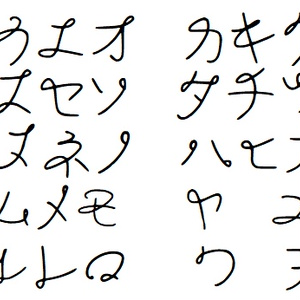 ウエオ カキ
スセソ タチツ
ヌネノ ハヒ
ムメモ ヤ ユ
ルレロ ワ